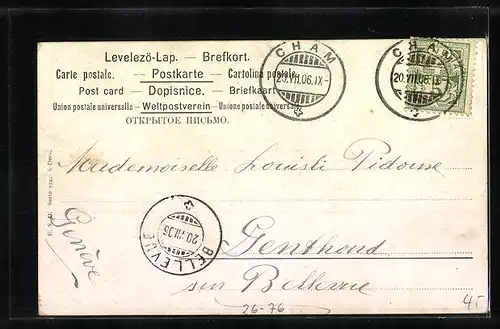 Levelező-Lap. — Brefkort.
Carte postale. — Postkarte — Cartolina postale.
Post card — Dopisnice. — Briefkaart
Union postale universelle — Weltpostverein — Unione postale universale
ОТКРЫТОЕ ПИСЬМО.
CHAM
20.VII.06.IX-
CHAM
20.VII.06.IX-
Mademoiselle Louisli Pidouse
BELLEVUE
20.VII.06
Genthoud
sur Bellevue
Genève
Serie 524. 6 Dess.
26-76
45